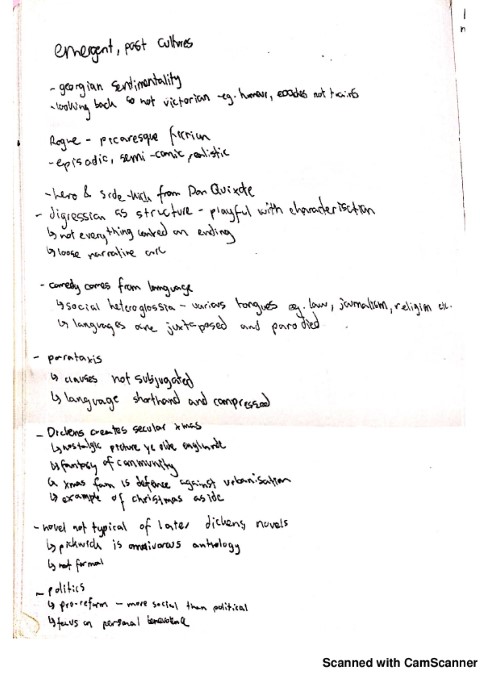 emergent, past cultures
- georgian sentimentality
- looking back so not victorian eg. humour, coaches not trains
Rogue - picaresque fiction
- episodic, semi-comic, realistic
- hero & side-kick from Don Quixote
- digression as structure - playful with characterisation
↳ not everything centred on ending
↳ loose narrative
- comedy comes from language
↳ social heteroglossia - various tongues eg. law, journalism, religion etc.
↳ languages are juxtaposed and parodied
- parataxis
↳ clauses not subjugated
↳ language shorthand and compressed
- Dickens creates secular xmas
↳ nostalgic picture ye olde
↳ fantasy of community
↳ xmas farm is defence against urbanisation
↳ example of christmas aside
- novel not typical of later dickens novels
↳ pickwick is omnivorous anthology
↳ not formal
- politics
↳ pro-reform - more social than political
↳ focus on personal benevolence
Scanned with CamScanner